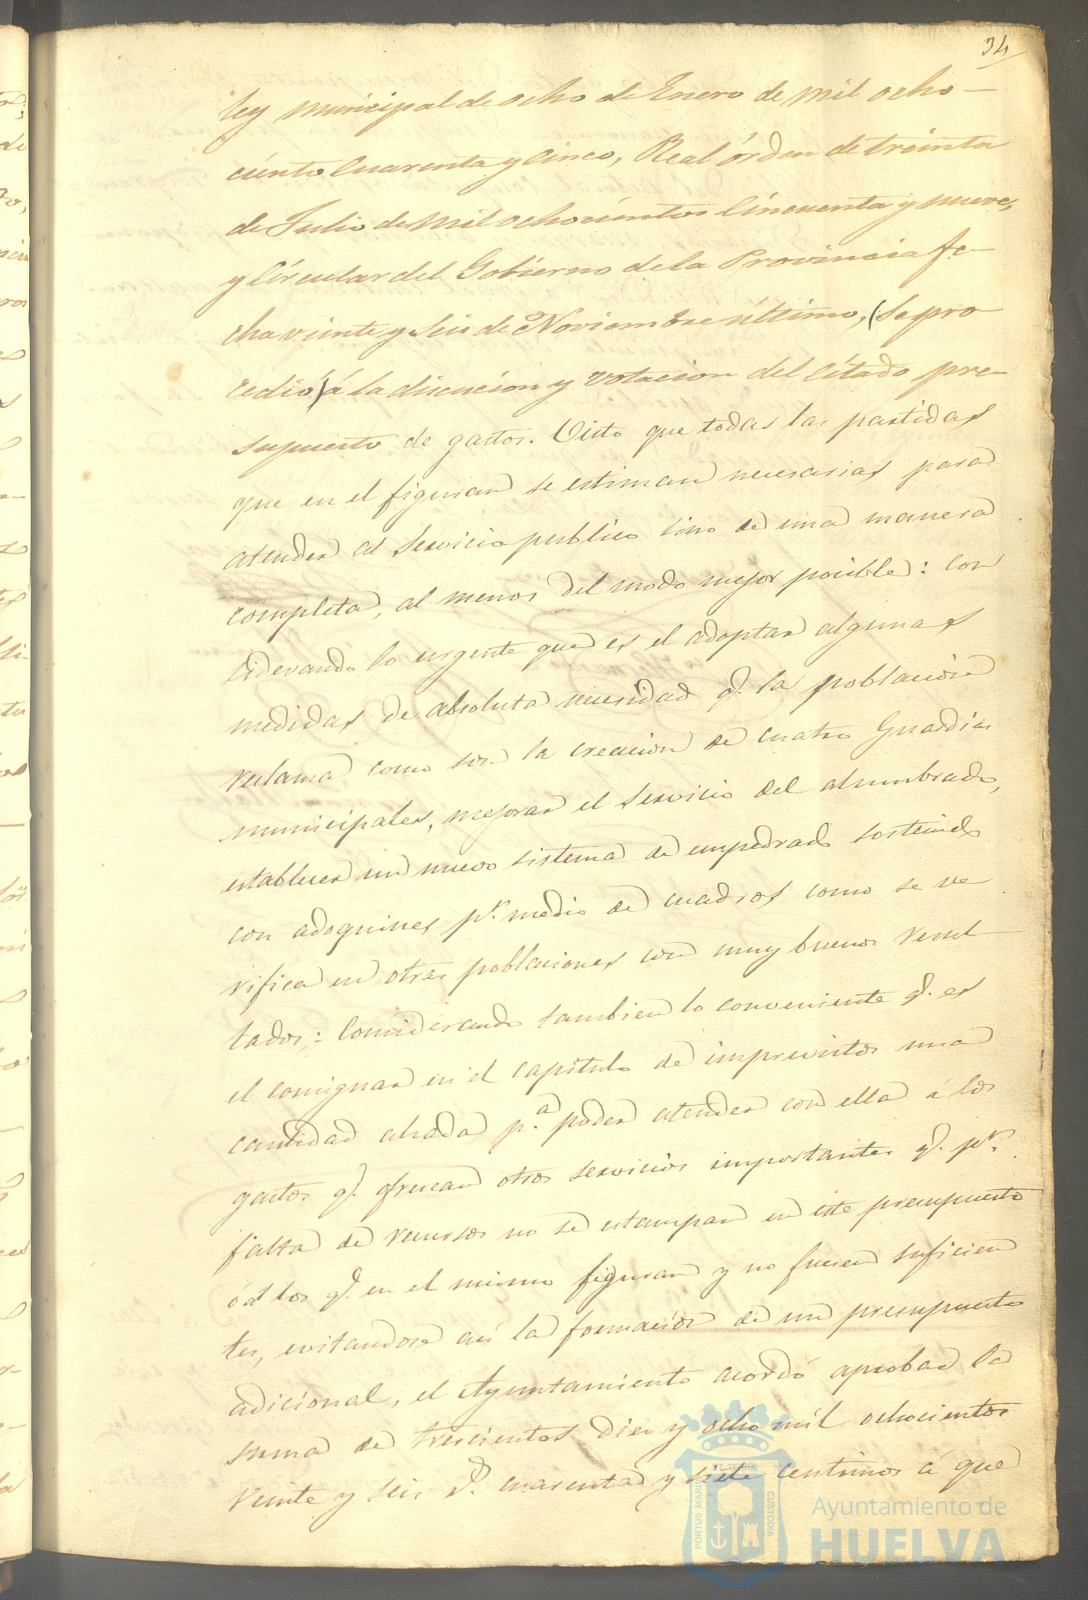 34
ley municipal de ocho de Enero de mil ocho-
ciento Cuarenta y Cinco, Real órden de treinta
de Julio de mil ochocientos Cincuenta y nueve,
y Circular del Gobierno de la Provincia fe-
cha veinte y Seis de Noviembre último, (Se pro
cedió) á la discucion y votacion del Citado pre-
supuesto de gastos. Visto que todas las partidas
que en el figuran se estiman necesarias para
atender al Servicio publico sino de una manera
completa, al menos del modo mejor posible: con
siderando lo urgente que es el adoptar algunas
medidas de absoluta necesidad q.e la poblacion
reclama como son la creacion de cuatro Guardias
municipales, mejorar el servicio del alumbrado,
establecer un nuevo sistema de empedrado sostenido
con adoquines p.r medio de cuadros como se ve
rifica en otras poblaciones con muy buenos resul
tados: Considerando tambien lo conveniente q.e es
el consignar en el capitulo de imprevistos una
cantidad alzada p.a poder atender con ella á los
gastos q.e ofrezcan otros servicios importantes q.e p.r
falta de recursos no se estampan en este presupuesto
ó á los q.e en el mismo figuran y no fuesen suficien
tes, evitandose asi la formacion de un presupuesto
adicional, el Ayuntamiento acordó aprobar la
suma de trescientos diez y ocho mil ochocientos
veinte y seis r.s cuarenta y siete centimos á que
PORTUS MARIS
CUSTODIA
Ayuntamiento de
HUELVA